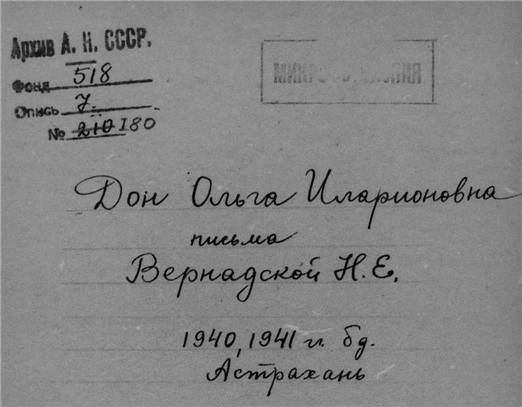 Архив А. Н. СССР.
Фонд 518
Опись 7.
№ 210 180
Дон Ольга Иларионовна
письма
Вернадской Н.Е.
1940, 1941 гг. бд.
Астрахань